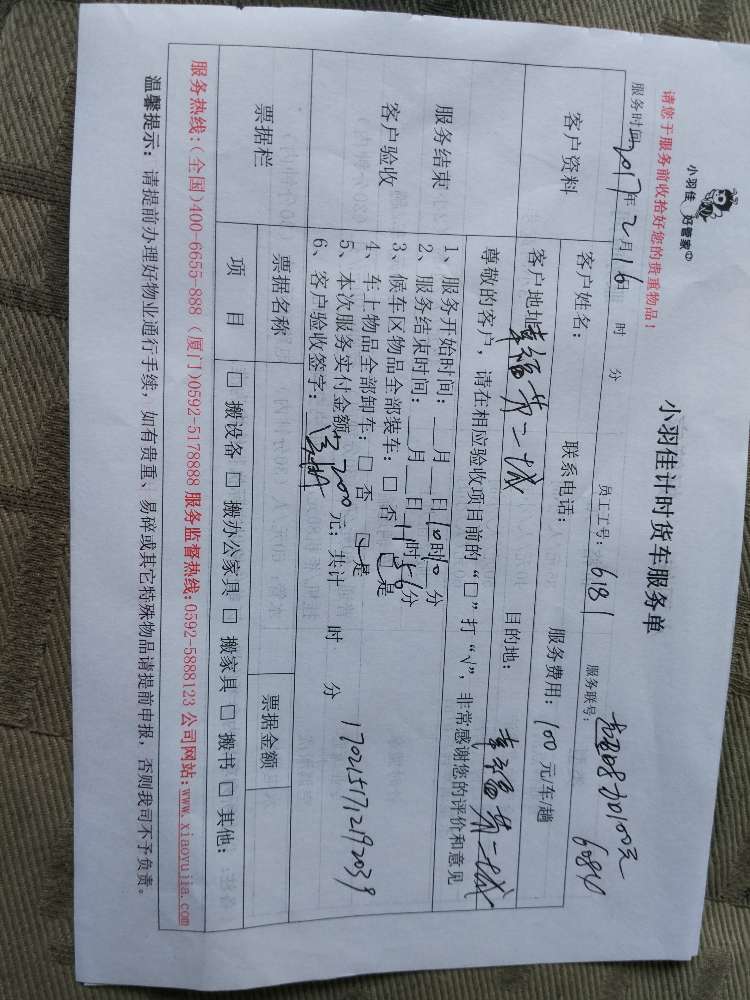 小羽佳 好管家
请您于服务前收拾好您的贵重物品！
小羽佳计时货车服务单
服务时间2017年2月16日 时 分 员工工号：6181 服务联号：6084
客户资料 客户姓名： 联系电话： 服务费用：100元/车/趟
客户地址幸福第二城 目的地：幸福第二城
服务结束
客户验收
尊敬的客户，请在相应验收项目前的“□”打“√”，非常感谢您的评价和意见
1、服务开始时间：__月__日10时10分
2、服务结束时间：__月__日11时56分
3、候车区物品全部装车：□ 否 □ 是
4、车上物品全部卸车：□ 否 □ 是
5、本次服务实付金额：200元；共计 时 分
6、客户验收签字：
170215712192039
票据栏 票据名称 票据金额
项 目 □ 搬设备 □ 搬办公家具 □ 搬家具 □ 搬书 □ 其他：
服务热线：(全国)400-6655-888 (厦门)0592-5178888 服务监督热线：0592-5888123 公司网站：www.xiaoyujia.com
温馨提示：请提前办理好物业通行手续，如有贵重、易碎或其它特殊物品请提前申报，否则我司不予负责。